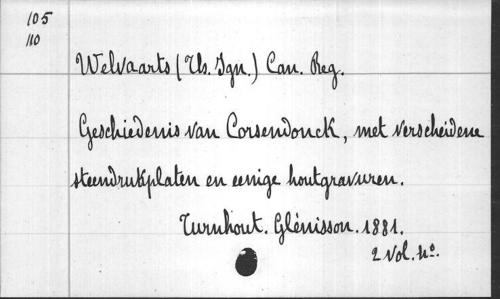 105
110
Welvaarts (Th. Ign.) Can. Reg.
Geschiedenis van Corsendonck, met verscheidene
steendrukplaten en eenige houtgravuren.
Turnhout. Glénisson. 1881.
2 vol. 4º.